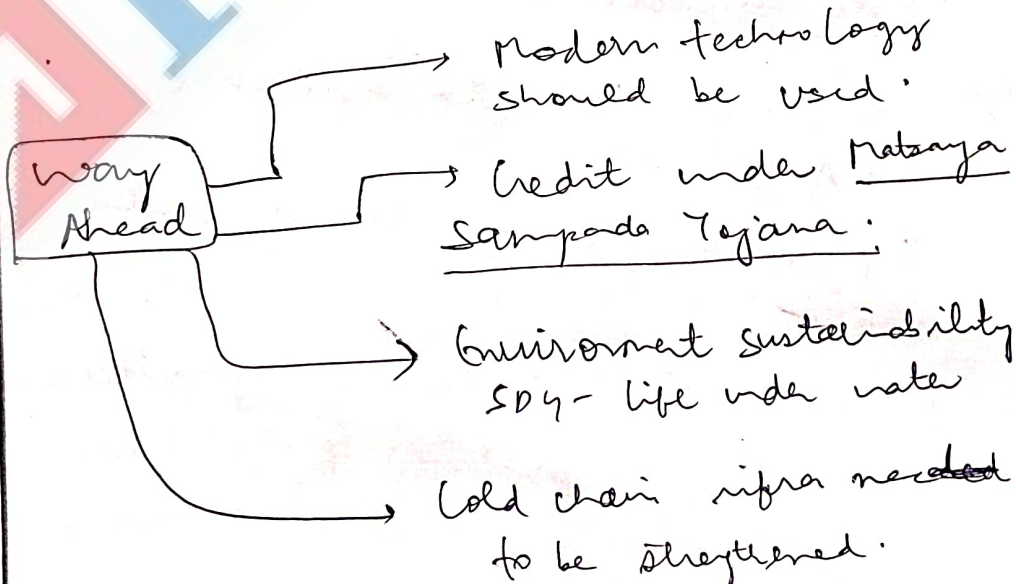 Way
Ahead
Modern technology
should be used.
Credit under Matsaya
Sampada Yojana.
Environment sustainability
SDG - life under water
Cold chain infra need
to be strengthened.